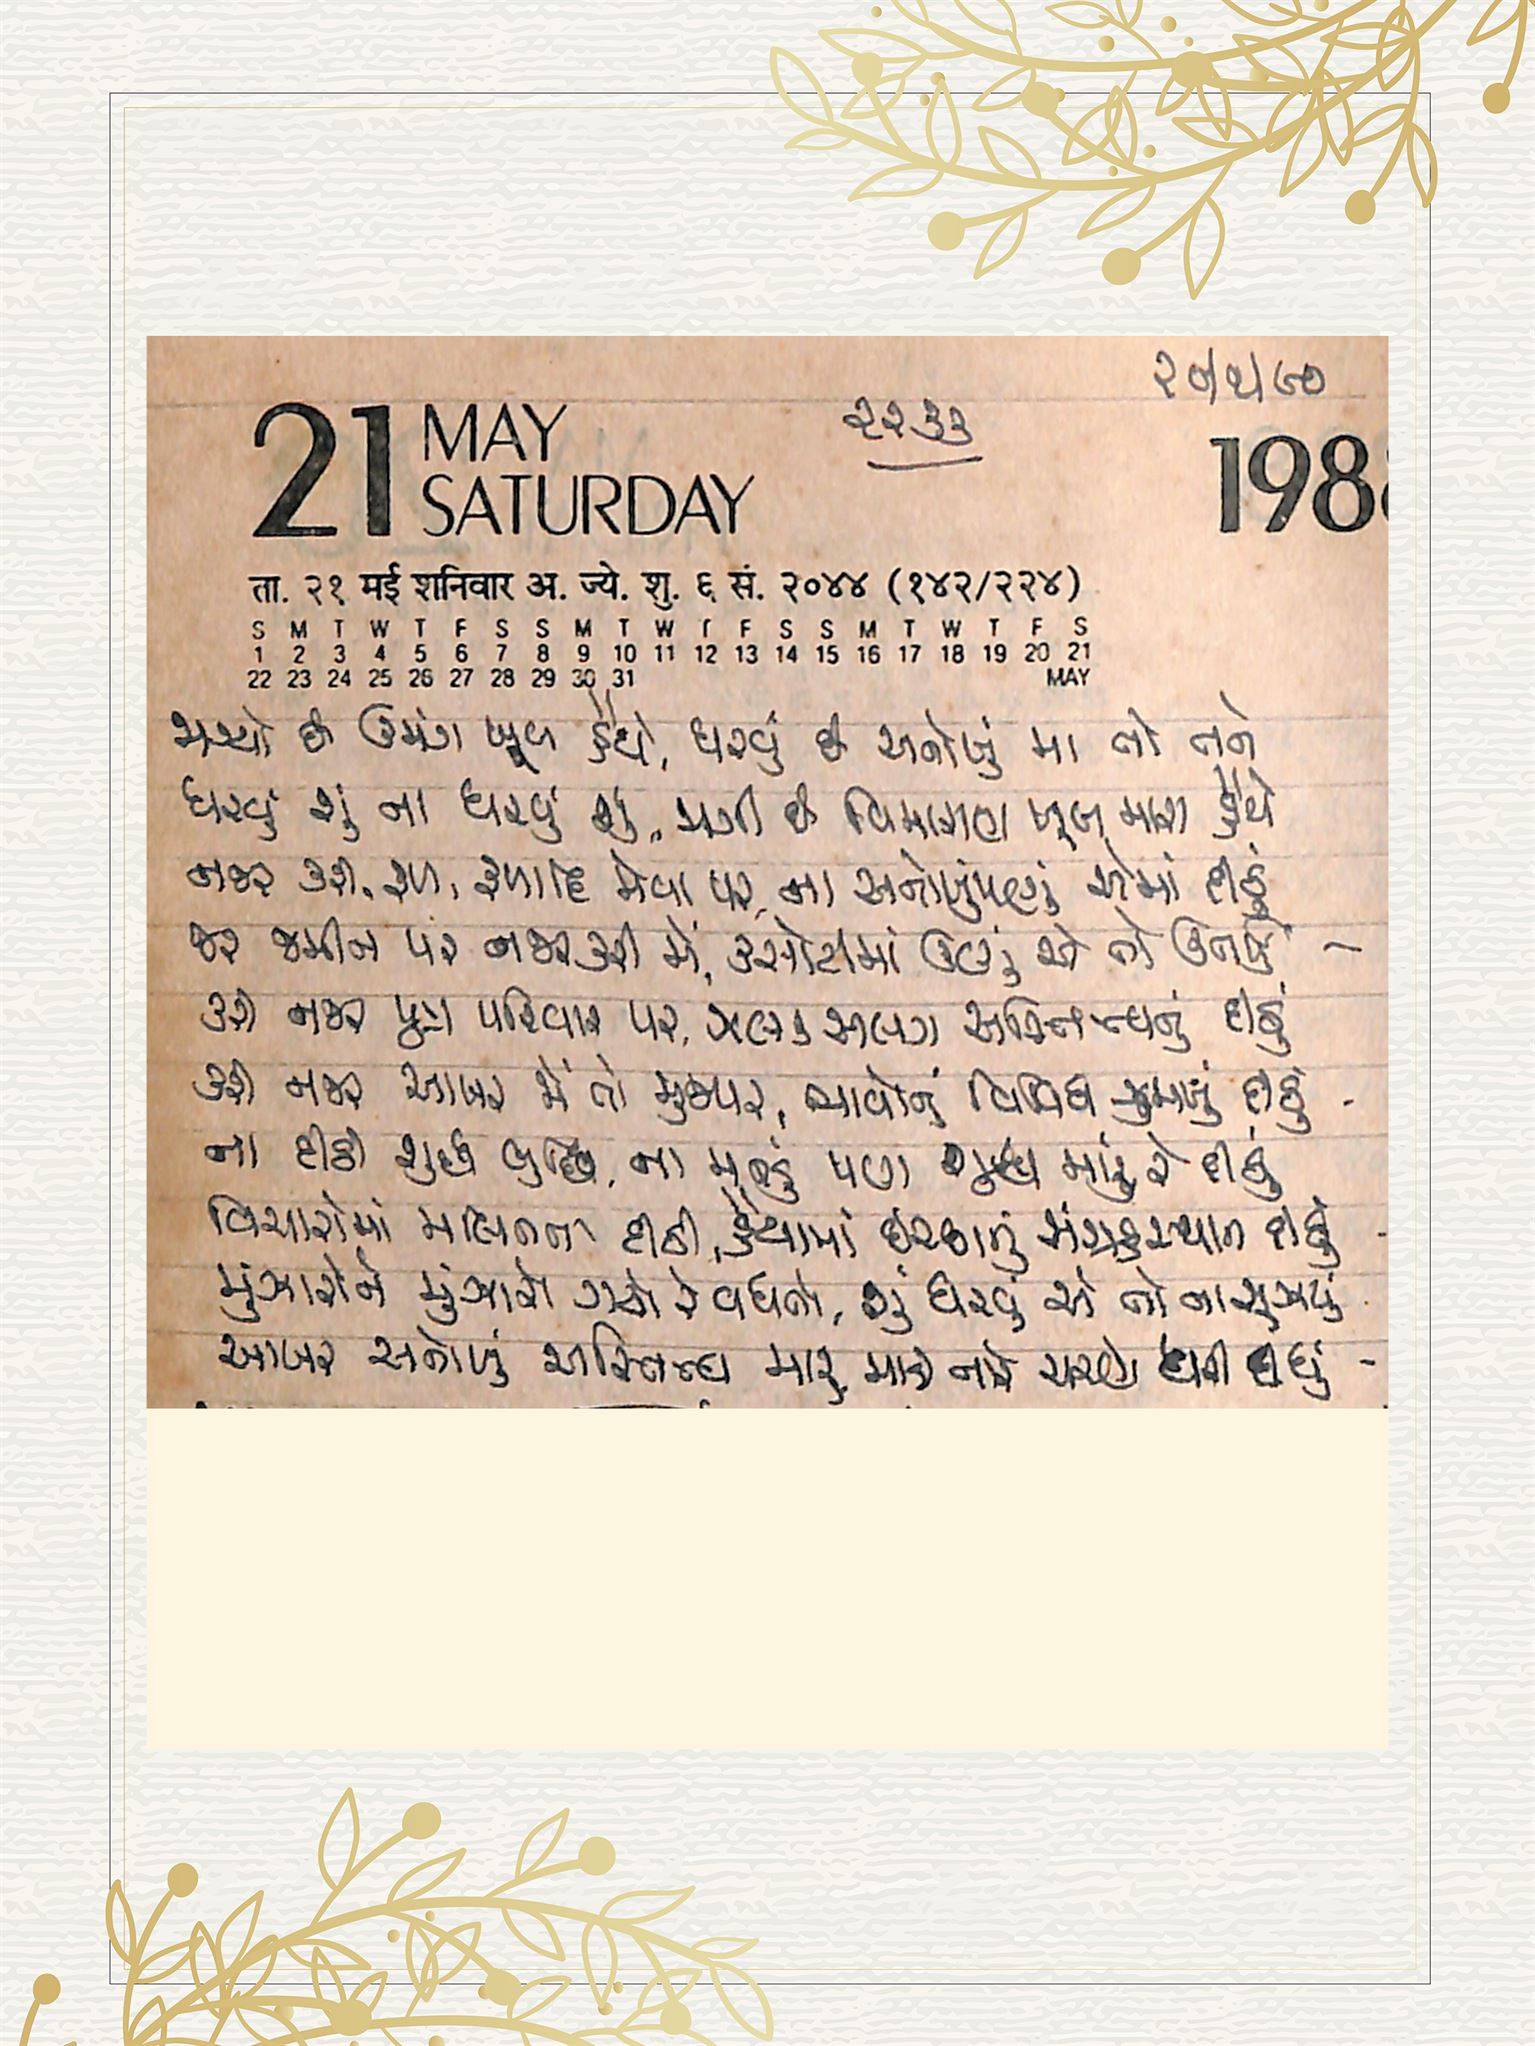 ૨૭/૧/૯૦
૨૨૩૩
21 MAY
SATURDAY
198
ता. २१ मई शनिवार अ. ज्ये. शु. ६ सं. २०४४ (१४२/२२४)
S M T W T F S S M T W T F S S M T W T F S
1 2 3 4 5 6 7 8 9 10 11 12 13 14 15 16 17 18 19 20 21
22 23 24 25 26 27 28 29 30 31 MAY
ભર્યો છે ઉમંગ ખૂબ હૈયે, ધરવું છે અનોખું મા તો તને
ધરવું શું ના ધરવું શું, મચી છે વિમાસણ ખૂબ મારા હૈયે
નજર કરી, ફળ, ફળાદિ મેવા પર, ના અનોખુંપણું એમાં દીઠું
જર જમીન પર નજર કરી મેં, કસોટીમાં ઊણું એ તો ઉતર્યું -
કરી નજર પૂરા પરિવાર પર, અલગ અલગ અસ્તિત્વનું દીઠું
કરી નજર આખર મેં તો મુજપર, ભાવોનું વિવિધ ઝુમખું દીઠું -
ના દીઠી શુદ્ધ બુદ્ધિ, ના મનડું પણ શુદ્ધ મારું રે દીઠું
વિચારોમાં મલિનતા દીઠી, હૈયામાં ઇચ્છાનું સંગ્રહસ્થાન દીઠું -
મુંઝારોને મુંઝારો ગયો રે વધતો, શું ધરવું એ તો ના સૂઝયું -
આખર અનોખું અસ્તિત્વ મારું, માત તારે ચરણે ધરી દીધું -